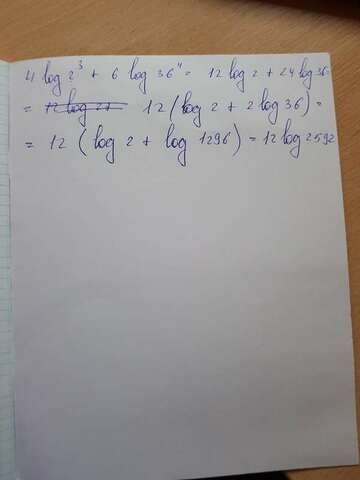 4 log 2³ + 6 log 36⁴ = 12 log 2 + 24 log 36 =
= 12 log 2+ 12 (log 2 + 2 log 36) =
= 12 (log 2 + log 1296) = 12 log 2592